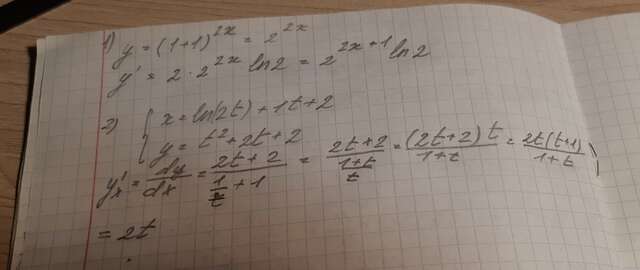 1) y = (1+1)^{2x} = 2^{2x}
y' = 2 · 2^{2x} ln2 = 2^{2x+1} ln2
2) { x = ln(2t) + 1t + 2
y = t² + 2t + 2
y'ₓ = dy/dx = (2t+2)/(1/t + 1) = (2t+2)/((1+t)/t) = (2t+2)t/(1+t) = 2t(t+1)/(1+t)
= 2t